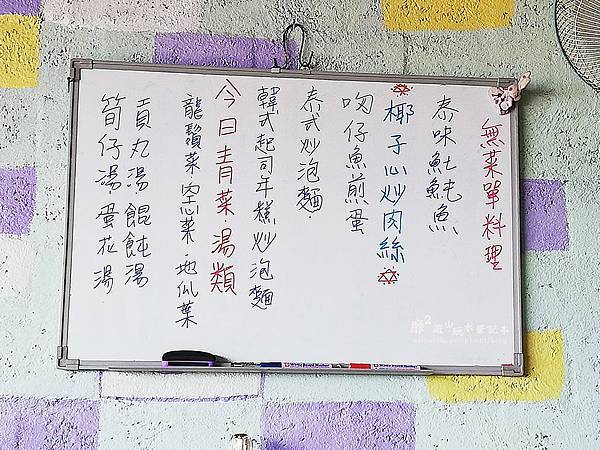 無菜單料理
泰味魠魠魚
椰子心炒肉絲
吻仔魚煎蛋
泰式炒泡麵
韓式起司年糕炒泡麵
今日青菜湯類
龍鬚菜.空心菜.地瓜菜
貢丸湯 餛飩湯
筍仔湯 蛋花湯